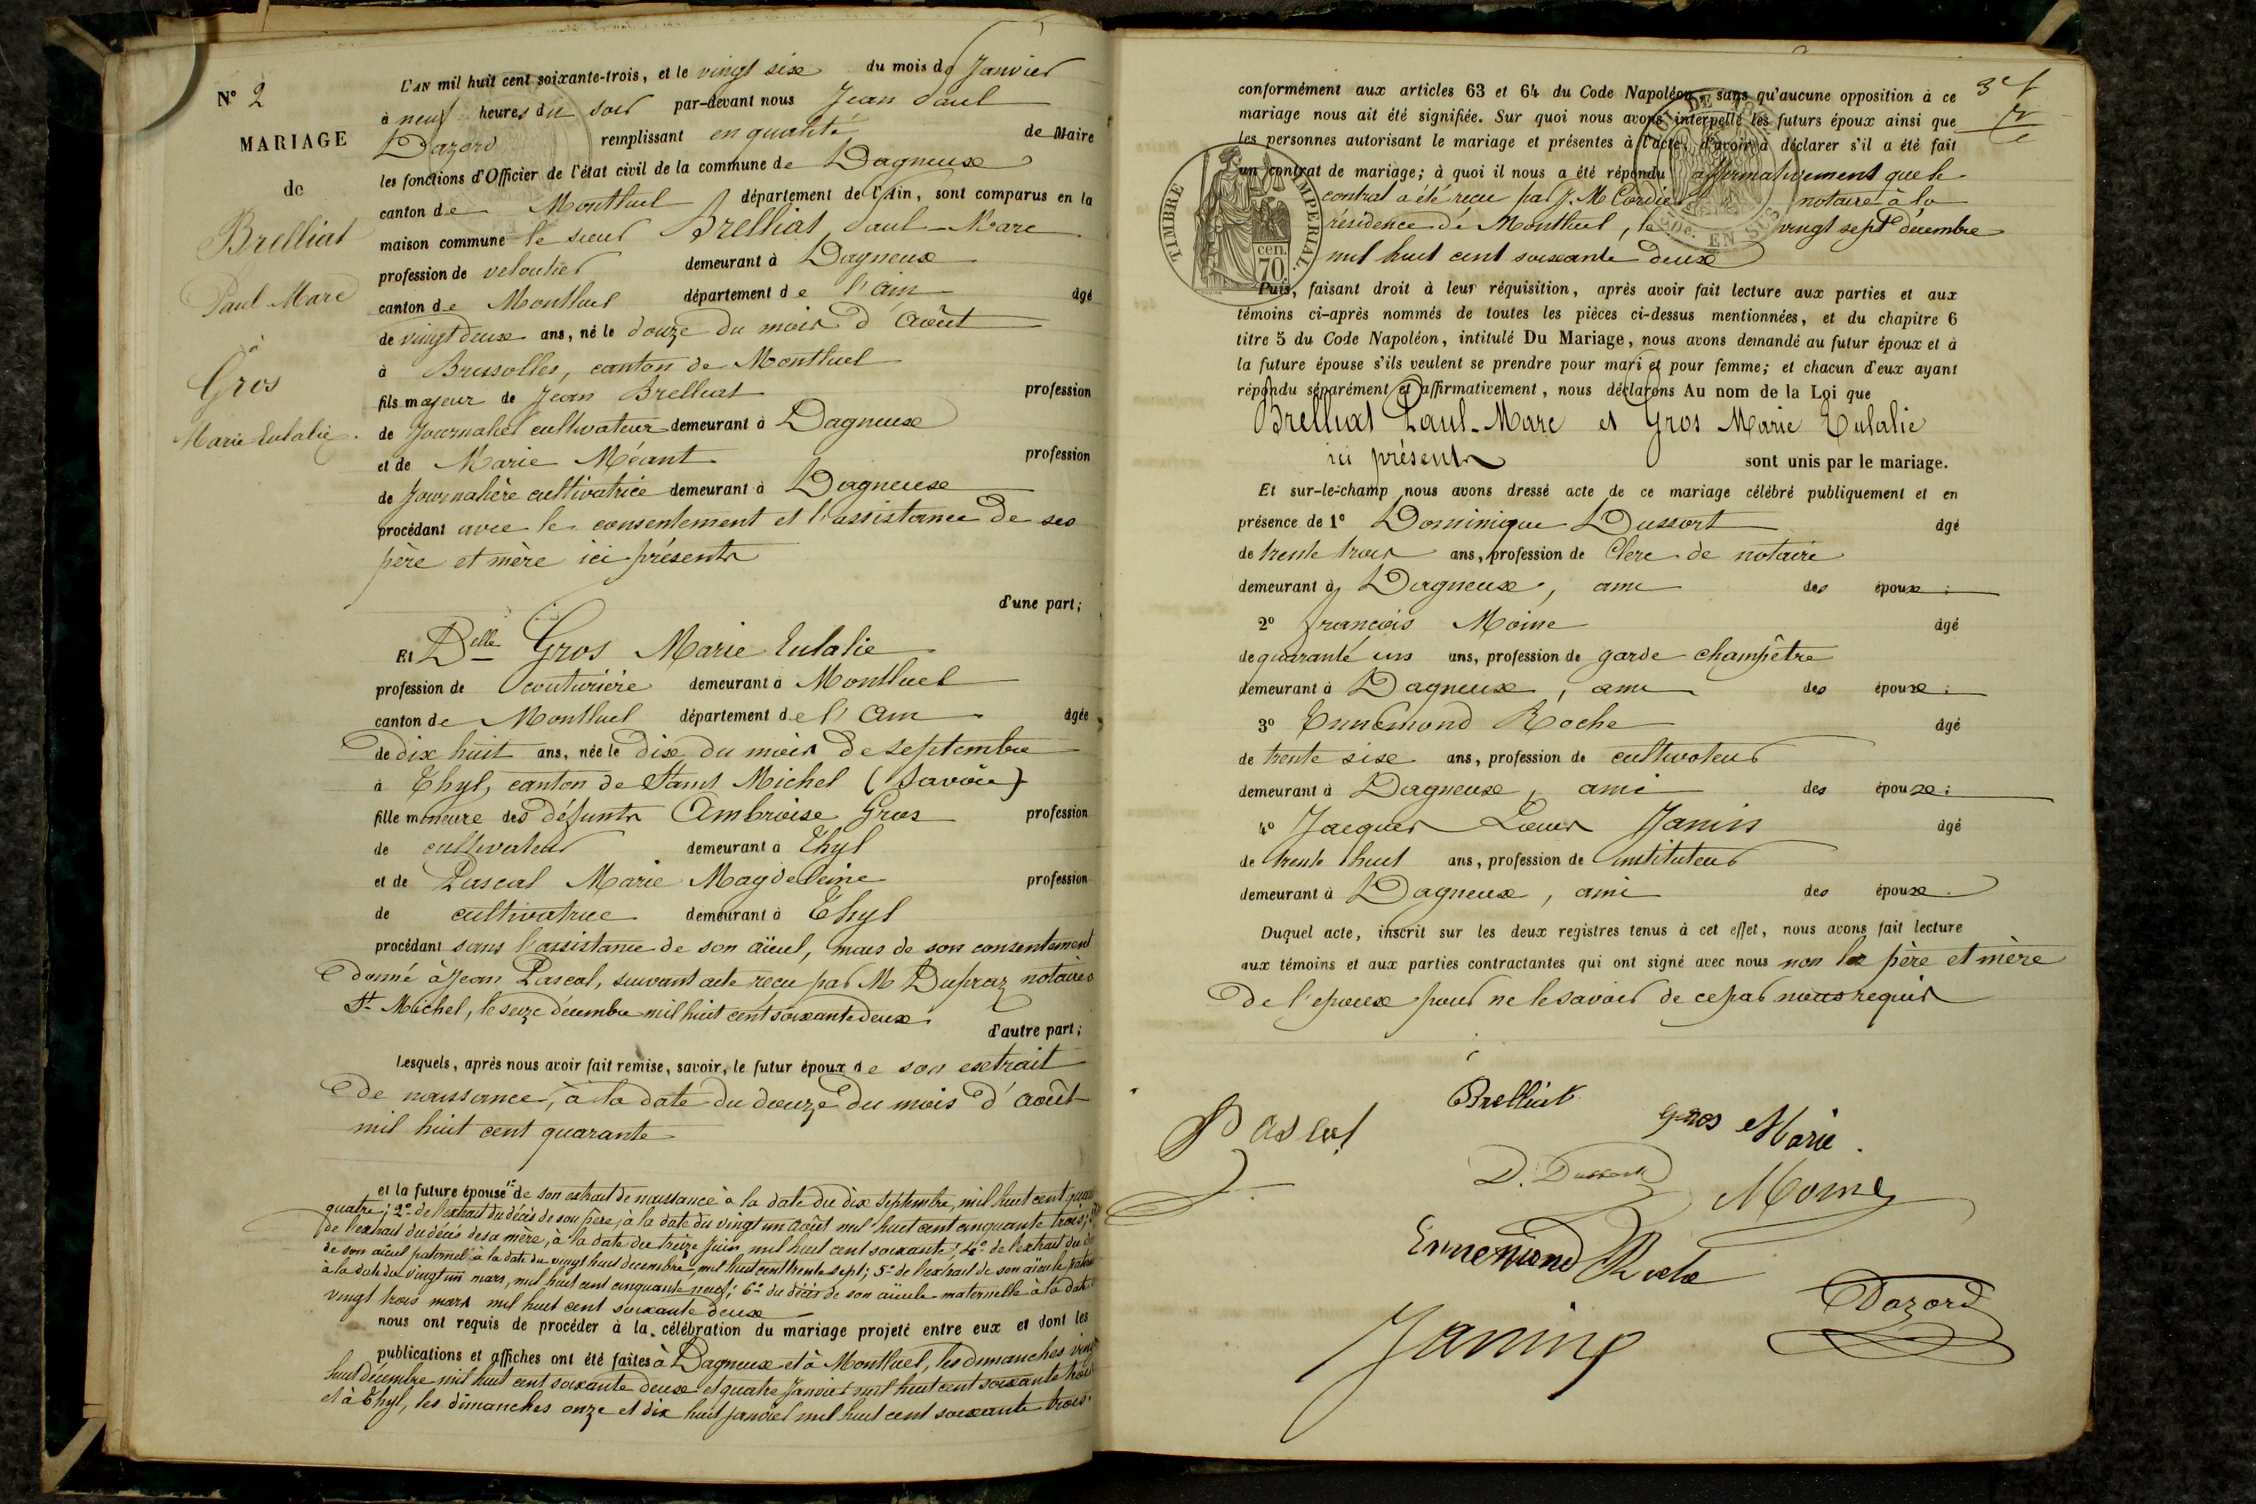 N° 2
MARIAGE
de
Brelliat
Paul Marc
à
Gros
Marie Eulalie.
L'AN mil huit cent soixante-trois, et le vingt six du mois de Janvier
à neuf heures du soir par-devant nous Jean Paul
Dazord remplissant en qualité de Maire
les fonctions d'Officier de l'état civil de la commune de Dagneux
canton de Montluel département de l'Ain, sont comparus en la
maison commune le sieur Brelliat Paul-Marc
profession de veloutier demeurant à Dagneux
canton de Montluel département de l'Ain âgé
de vingt deux ans, né le douze du mois d'Août
à Bressolles, canton de Montluel
fils majeur de Jean Brelliat profession
de Journalier cultivateur demeurant à Dagneux
et de Marie Méant profession
de Journalière cultivatrice demeurant à Dagneux
procédant avec le consentement et l'assistance de ses
père et mère ici présents
d'une part;
Et Delle Gros Marie Eulalie
profession de couturière demeurant à Montluel
canton de Montluel département de l'Ain âgée
de dix huit ans, née le dix du mois de septembre
à Thyl, canton de Saint Michel (Savoie)
fille mineure des défunts Ambroise Gros profession
de cultivateur demeurant à Thyl
et de Pascal Marie Magdeleine profession
de cultivatrice demeurant à Thyl
procédant sans l'assistance de son aïeul, mais de son consentement
donné à Jean Pascal, suivant acte recu par M Dupraz notaire à
St Michel, le seize décembre mil huit cent soixante deux
d'autre part;
Lesquels, après nous avoir fait remise, savoir, le futur époux de son extrait
de naissance, à la date du douze du mois d'août
mil huit cent quarante
et la future épouse 1° de son extrait de naissance à la date du dix septembre, mil huit cent quarante
quatre; 2° de l'extrait du décès de son père, à la date du vingt un août mil huit cent cinquante trois;
de l'extrait du décès de sa mère, à la date du treize juin mil huit cent soixante; 4° de l'extrait du
de son aïeul paternel à la date du vingt huit decembre, mil huit cent trente sept; 5° de l'extrait de son aïeule
à la date du vingt un mars, mil huit cent cinquante neuf; 6° du décès de son aieule maternelle à la date
vingt trois mars mil huit cent soixante deux
nous ont requis de procéder à la célébration du mariage projeté entre eux et dont les
publications et affiches ont été faites à Dagneux et à Montluel, les dimanches vingt
huit décembre mil huit cent soixante deux et quatre Janvier mil huit cent soixante trois
et à Thyl, les dimanches onze et dix huit janvier mil huit cent soixante trois.
conformément aux articles 63 et 64 du Code Napoléon, sans qu'aucune opposition à ce
mariage nous ait été signifiée. Sur quoi nous avons interpellé les futurs époux ainsi que
les personnes autorisant le mariage et présentes à l'acte, d'avoir à déclarer s'il a été fait
un contrat de mariage; à quoi il nous a été répondu affirmativement que le
contrat a été recu par J. M. Cordier notaire à la
résidence de Montluel, le vingt sept décembre
mil huit cent soixante deux
TIMBRE IMPERIAL.
cen.
70.
Puis, faisant droit à leur réquisition, après avoir fait lecture aux parties et aux
témoins ci-après nommés de toutes les pièces ci-dessus mentionnées, et du chapitre 6
titre 5 du Code Napoléon, intitulé Du Mariage, nous avons demandé au futur époux et à
la future épouse s'ils veulent se prendre pour mari et pour femme; et chacun d'eux ayant
répondu séparément et affirmativement, nous déclarons Au nom de la Loi que
Brelliat Paul-Marc et Gros Marie Eulalie
ici présents sont unis par le mariage.
Et sur-le-champ nous avons dressé acte de ce mariage célébré publiquement et en
présence de 1° Dominique Dussort âgé
de trente trois ans, profession de Clerc de notaire
demeurant à Dagneux, ami des époux;
2° François Moine âgé
de quarante un ans, profession de garde champêtre
demeurant à Dagneux, ami des époux;
3° Ennemond Roche âgé
de trente six ans, profession de cultivateur
demeurant à Dagneux, ami des époux;
4° Jacques Louis Janin âgé
de trente huit ans, profession de instituteur
demeurant à Dagneux, ami des époux.
Duquel acte, inscrit sur les deux registres tenus à cet effet, nous avons fait lecture
aux témoins et aux parties contractantes qui ont signé avec nous non les père et mère
de l'époux pour ne le savoir de ce par nous requis
Brelliat
Pascal
Gros Marie
D. Dussort
Moine
Ennemond Roche
Janin
Dazord